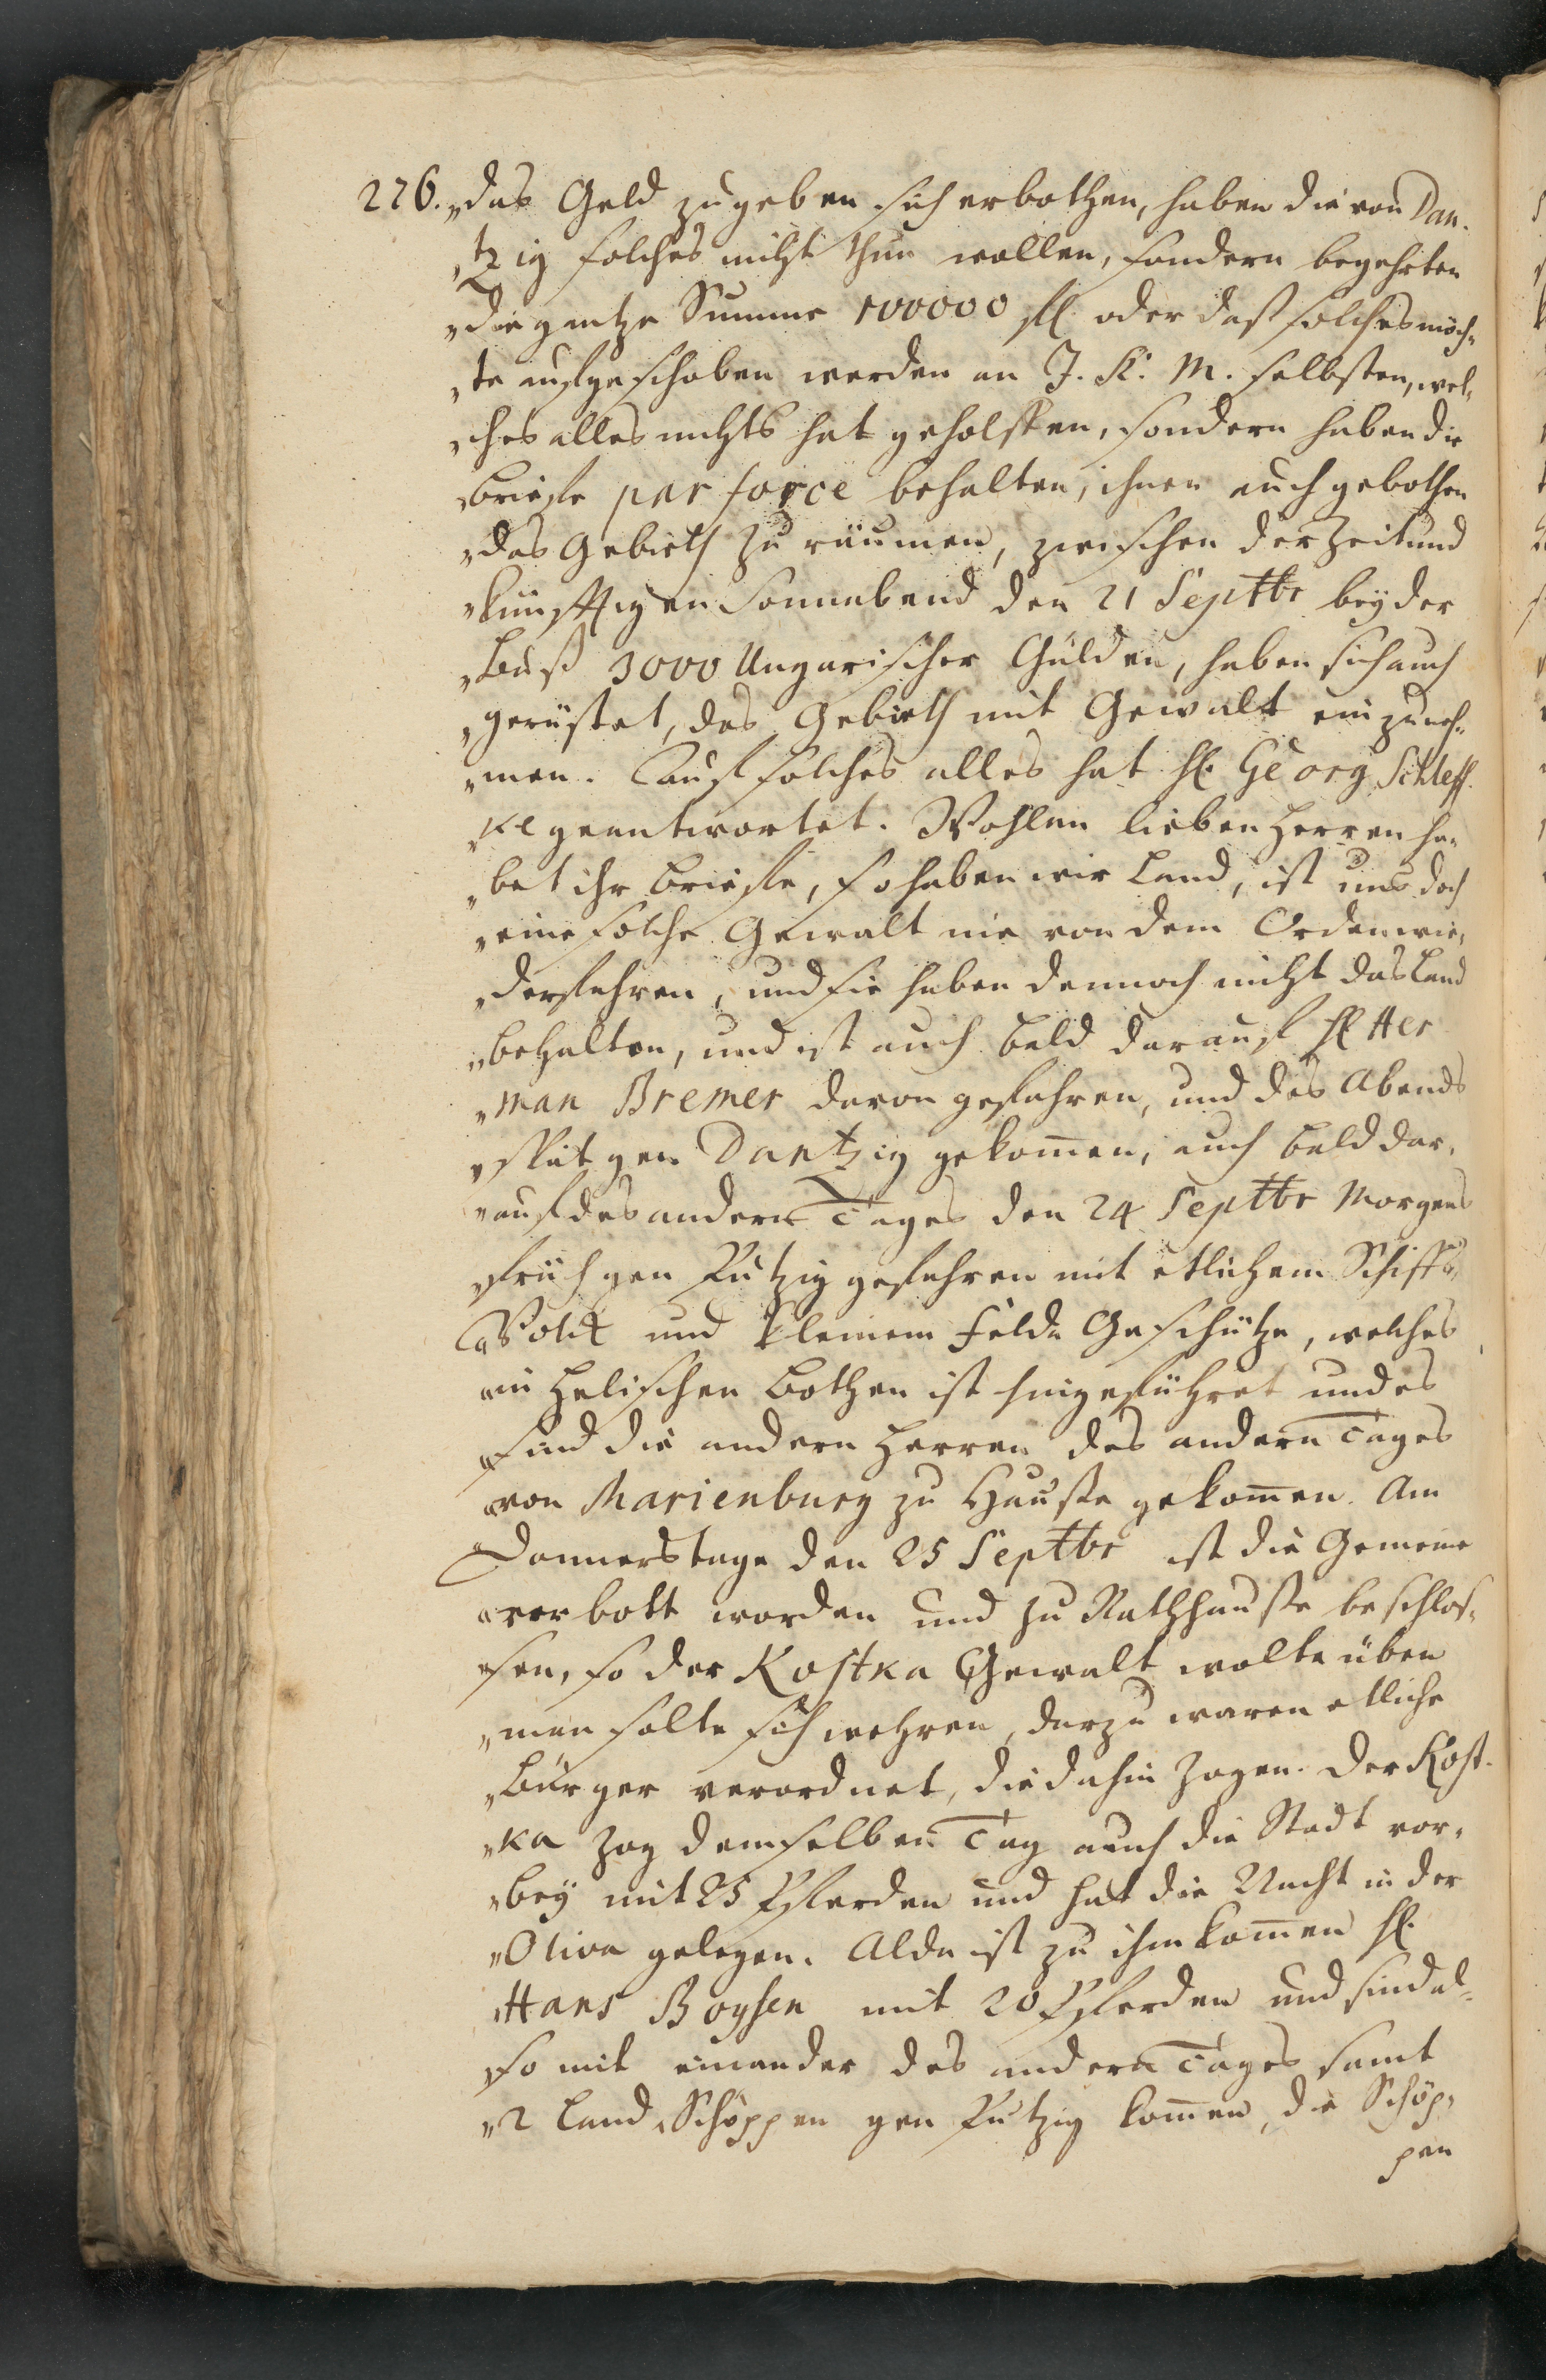 226. „das Geld zugeben sich erbothen, haben die von Dan-
„tzig solches nicht thun wollen, sondern begehrten
„die gantze Summe 100000 fl. oder daß solches möch-
„te aufgeschoben werden an J. K. M. selbsten, wel-
„ches alles nichts hat geholffen, sondern haben die
„brieffe par force behalten, ihnen auch gebothen
„das Gebieth zu räumen, zwischen der Zeit und
„künfftigen Sonnabend den 21 Septbr bey der
„Buß 3000 Ungarischer Gülden, haben sich auch
„gerüstet, das Gebieth mit Gewalt ein zuneh-
„men. Auf solches alles hat H. Georg Schleff-
„ke geantwortet. Wohlan lieben Herren ha-
„bet ihr brieffe, so haben wir Land, ist uns doch
„eine solche Gewalt nie von dem Orden wie-
„derfahren, und sie haben dennoch nicht das Land
„behalten, und ist auch bald darauf H. Her
„man Bremer davon gefahren, und des Abends
„spät gen Dantzig gekommen, auch bald dar-
„auf des andern Tages den 24 Septbr Morgens
„früh gen Putzig gefahren mit etlichem Schiffs-
„Volck und kleinem Felde Geschütze, welches
„in Helischen Bothen ist hingeführet und es
„sind die andern Herren des andern Tages
„von Marienburg zu Hause gekommen. Am
„Donnerstage den 25 Septbr ist die Gemeine
„verbott worden und zu Rathhause beschlos-
„sen, so der Kostka Gewalt wolte üben
„man solte sich wehren, darzu waren etliche
„Bürger verordnet, die dahin zogen. Der Kost-
„ka zog demselben Tag auch die Stadt vor-
„bey mit 25 Pferden und hat die Nacht in der
„Oliva gelegen. Alda ist zu ihm kommen H.
„Hans Boysen mit 20 Pferden und sind al-
„so mit einander des andern Tages samt
„2 Land Schöppen gen Putzig kommen, die Schöp-
pen